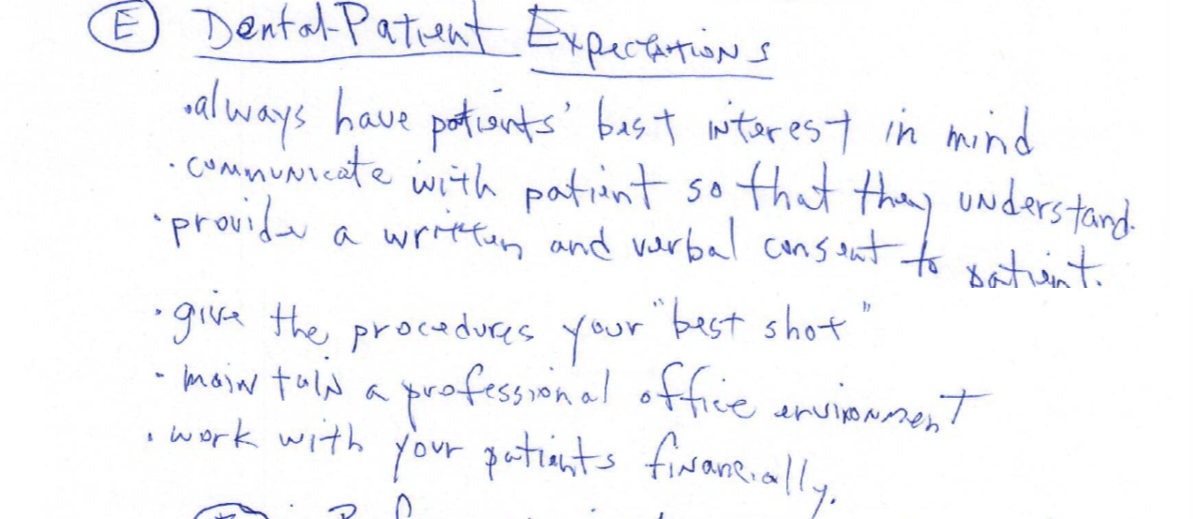 Ⓔ Dental-Patient Expectations
•always have patients' best interest in mind
•communicate with patient so that they understand.
•provide a written and verbal consent to patient.
•give the procedures your "best shot"
•maintain a professional office environment
•work with your patients financially.